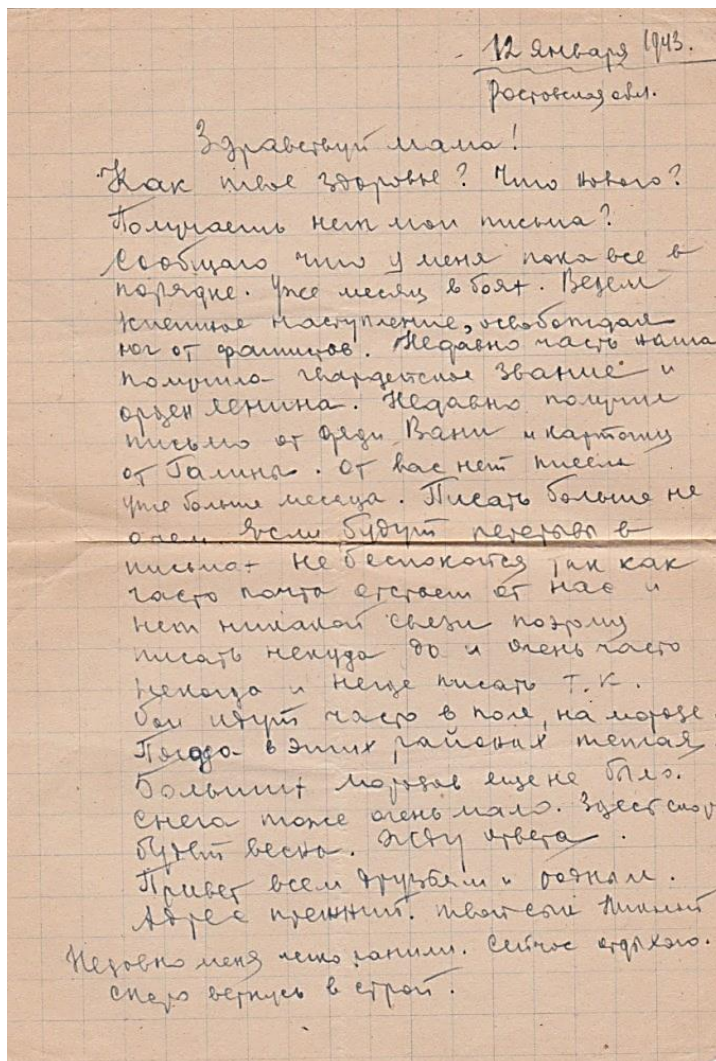 12 января 1943.
Ростовская обл.
Здравствуй мама!
Как твое здоровье? Что нового?
Получаешь нет мои письма?
Сообщаю что у меня пока все в
порядке. Уже месяц в боях. Ведем
успешное наступление, освобождая
юг от фашистов. Недавно часть наша
получила гвардейское звание и
орден Ленина. Недавно получил
письмо от дяди Вани и карточку
от Галины. От вас нет писем
уже больше месяца. Писать больше не
Если будут перерывы в
письмах не беспокойся так как
часто почта отстает от нас и
нет никакой связи поэтому
писать некуда да и очень часто
некогда и негде писать т.к.
бои идут часто в поле, на морозе.
Погода в этих районах теплая
Больших морозов еще не было.
Снега тоже очень мало. Здесь скоро
будет весна. Жду ответа.
Привет всем друзьям и родным.
Адрес прежний. Твой сын
Недавно меня легко ранили. Сейчас отдыхаю.
Скоро вернусь в строй.